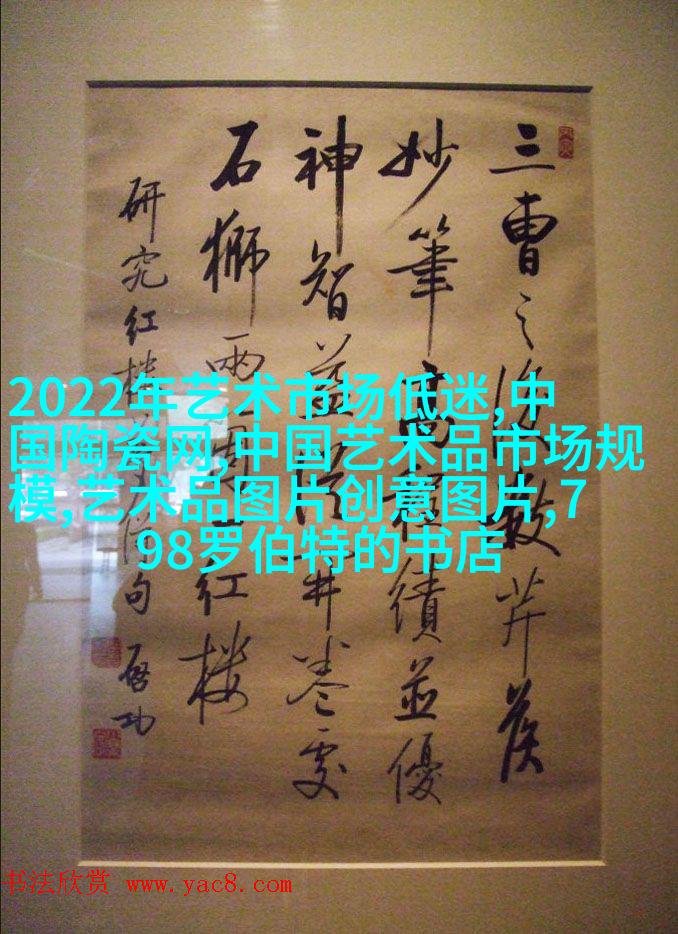 三曹之後數芹侯
妙筆高程績並優
神智益從開卷處
石獅兩個一紅楼
研究紅楼句 啓功
2022年艺术市场低迷,中
国陶瓷网,中国艺术品市场规
模,艺术品图片创意图片,7
98罗伯特的书店
书法欣赏 www.yac8.com